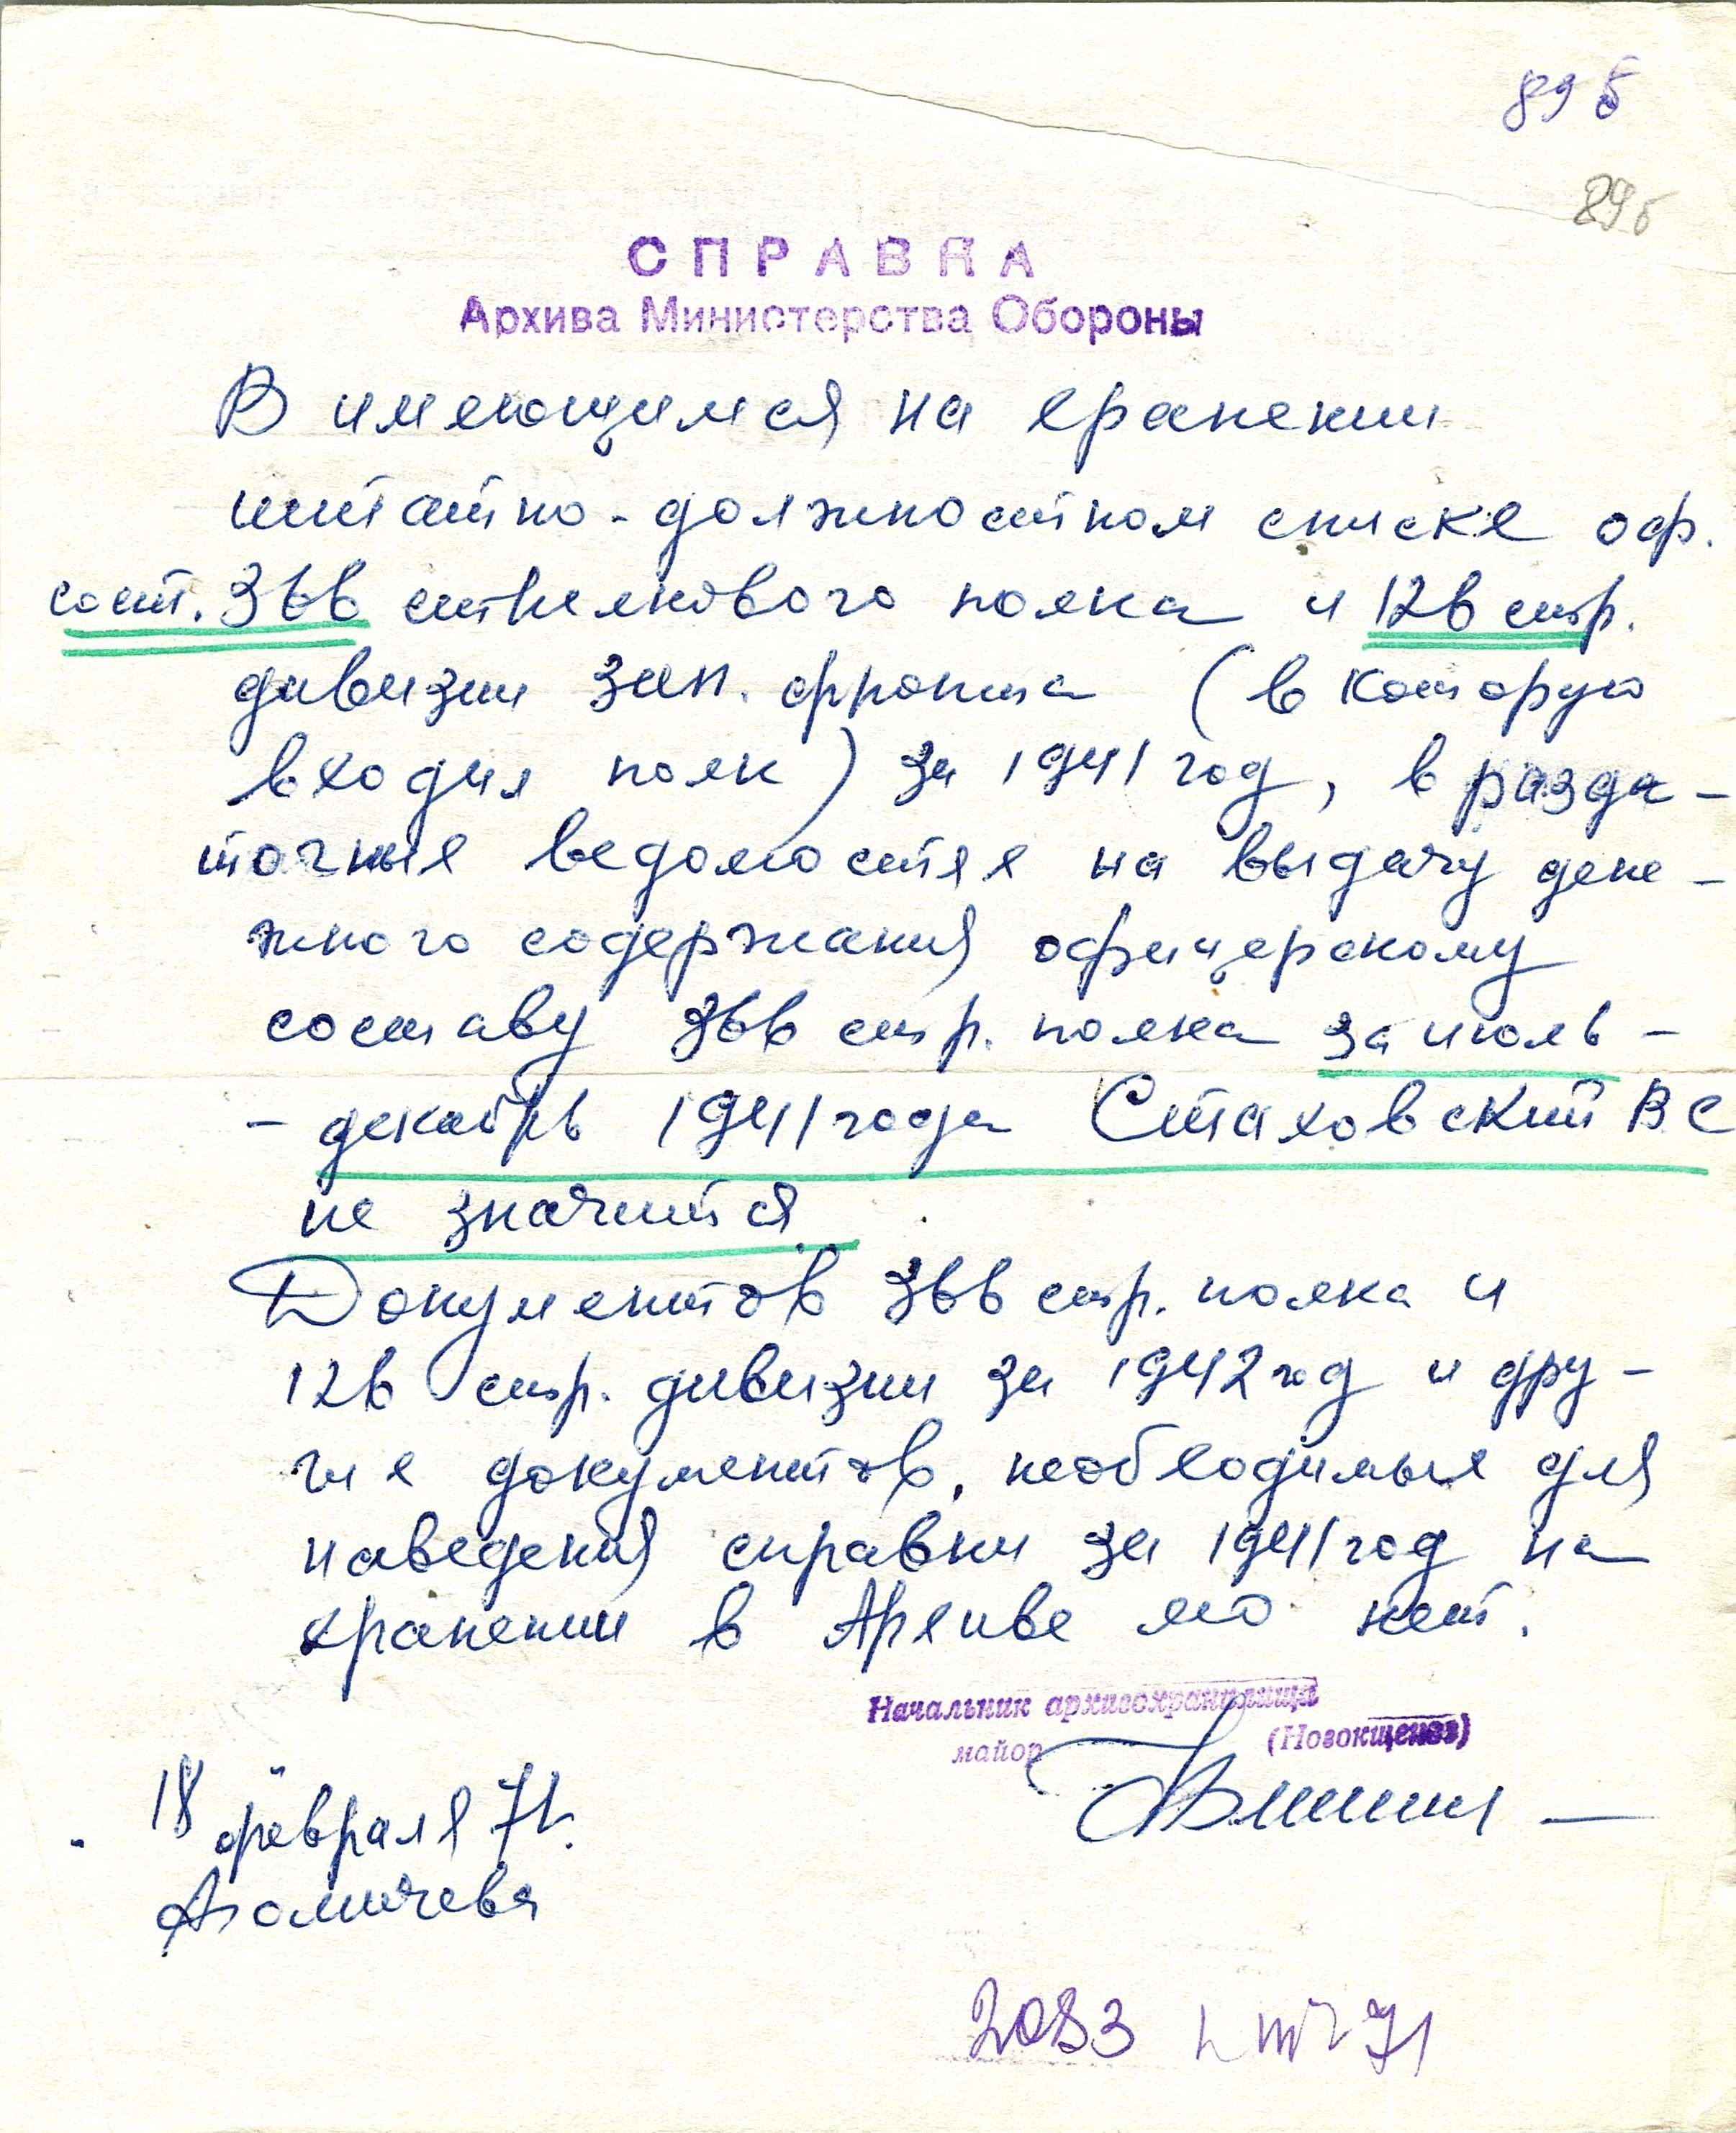 89 б
89 б
СПРАВКА
Архива Министерства Обороны
В имеющимся на хранении
штатно-должностном списке оф.
сост. 366 стрелкового полка и 126 стр.
дивизии зап. фронта (в которую
входил полк) за 1941 год, в разда-
точных ведомостях на выдачу дене-
жного содержания офицерскому
составу 366 стр. полка за июль -
- декабрь 1941 года Стаховский ВС
не значится.
Документов 366 стр. полка и
126 стр. дивизии за 1942 год и дру-
гих документов, необходимых для
наведения справки за 1941 год на
хранении в Архиве МО нет.
Начальник архивохранилища
майор (Новокщенов)
18 февраля 71.
2083 71